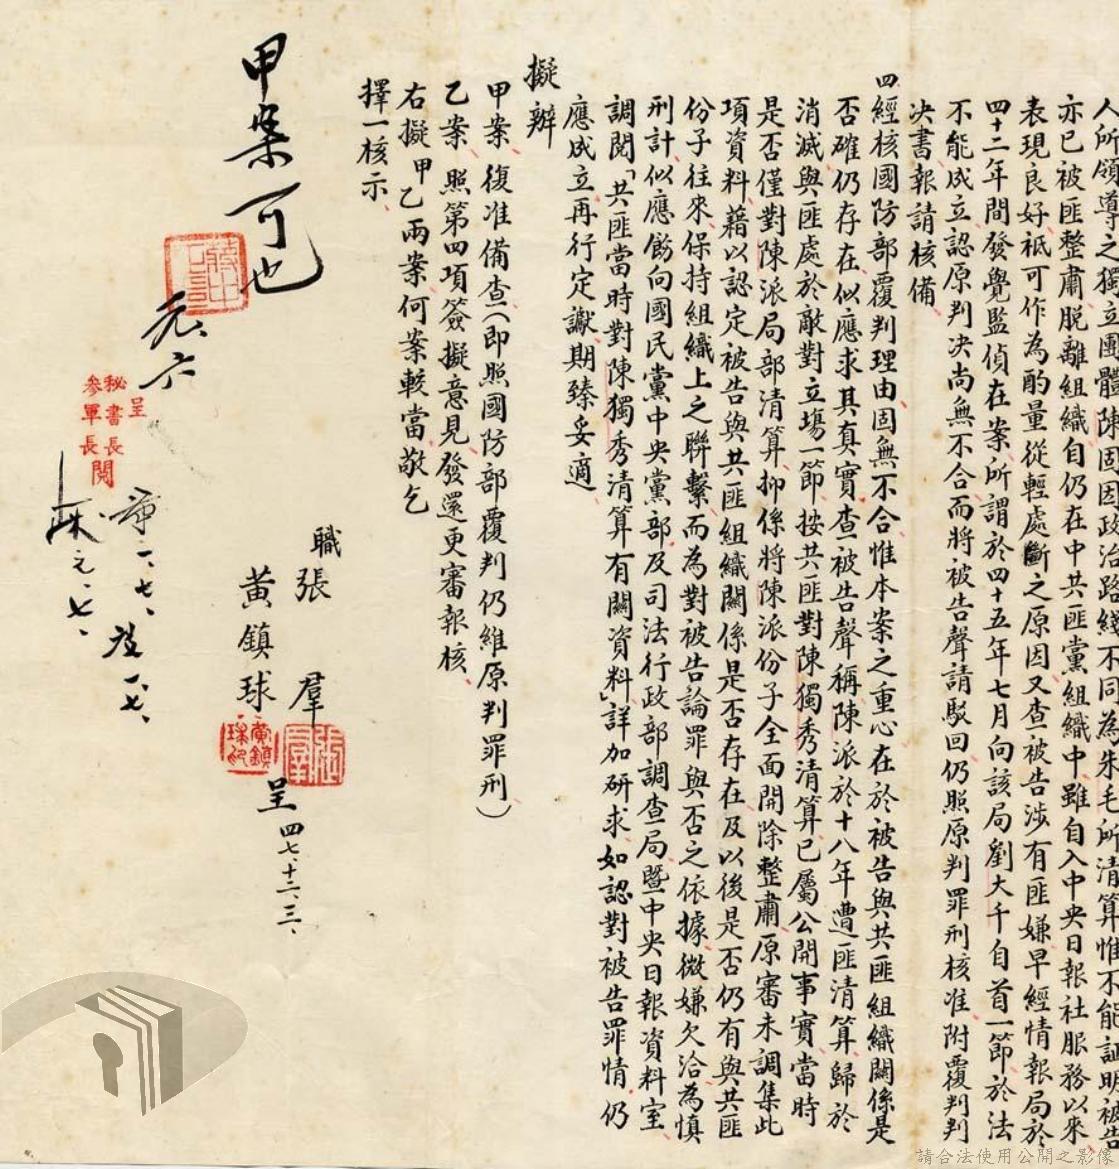 人所領導之獨立團體陳固因政治路綫不同為朱毛所清算惟不能証明被告
亦已被匪整肅脫離組織自仍在中共匪黨組織中雖自入中央日報社服務以來
表現良好祗可作為酌量從輕處斷之原因又查被告涉有匪嫌早經情報局於
四十二年間發覺監偵在案所謂於四十五年七月向該局劉大千自首一節於法
不能成立認原判決尚無不合而將被告聲請駁回仍照原判罪刑核准附覆判判
決書報請核備
四、經核國防部覆判理由固無不合惟本案之重心在於被告與共匪組織關係是
否確仍存在似應求其真實查被告聲稱陳派於十八年遭匪清算歸於
消滅與匪處於敵對立場一節按共匪對陳獨秀清算已屬公開事實當時
是否僅對陳派局部清算抑係將陳派份子全面開除整肅原審未調集此
項資料藉以認定被告與共匪組織關係是否存在及以後是否仍有與共匪
份子往來保持組織上之聯繫而為對被告論罪與否之依據微嫌欠洽為慎
刑計似應飭向國民黨中央黨部及司法行政部調查局暨中央日報資料室
調閱「共匪當時對陳獨秀清算有關資料」詳加研求如認對被告罪情仍
應成立再行定讞期臻妥適
擬辦
甲案、復准備查(即照國防部覆判仍維原判罪刑)
乙案、照第四項簽擬意見發還更審報核、
右擬甲乙兩案何案較當敬乞
擇一核示、
職張羣
黃鎮球
呈 四七、十二、三、
張羣
黃鎮球印
甲案可也
蔣中正印
元、六
呈
秘書長
參軍長
閱
一、七、
元、七、
請合法使用公開之影像